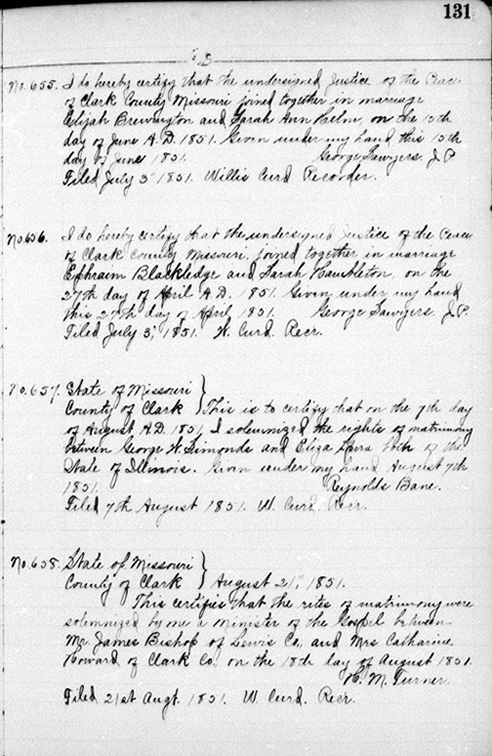 131
No. 655. I do hereby certify that the undersigned Justice of the Peace
of Clark County Missouri joined together in marriage
Elijah Brewington and Sarah Ann on the 15th
day of June A.D. 1851. Given under my hand this 15th
day of June 1851. George Sawyers J P.
Filed July 3d 1851. Willis Curd Recorder.
No. 656. I do hereby certify that the undersigned Justice of the Peace
of Clark County Missouri, joined together in marriage
Ephraim Blackledge and Sarah Hambleton, on the
27th day of April A.D. 1851. Given under my hand
this 27th day of April 1851. George Sawyers J.P.
Filed July 3, 1851. W. Curd. Recr.
No. 657. State of Missouri }
County of Clark } This is to certify that on the 7th day
of August A.D. 1851, I solemnized the rights of matrimony
between George W. Simonds and Eliza both of the
State of Illinois. Given under my hand August 7th
1851. Reynolds Bane.
Filed 7th August 1851. W. Curd. Recr.
No. 658. State of Missouri }
County of Clark } August 21, 1851.
This certifies that the rites of matrimony were
solemnized by me a Minister of the Gospel between
Mr. James Bishop of Lewis Co., and Mrs Catharine
Howard of Clark Co. on the 18th day of August 1851.
M. Turner.
Filed 21st Augt. 1851. W. Curd. Recr.